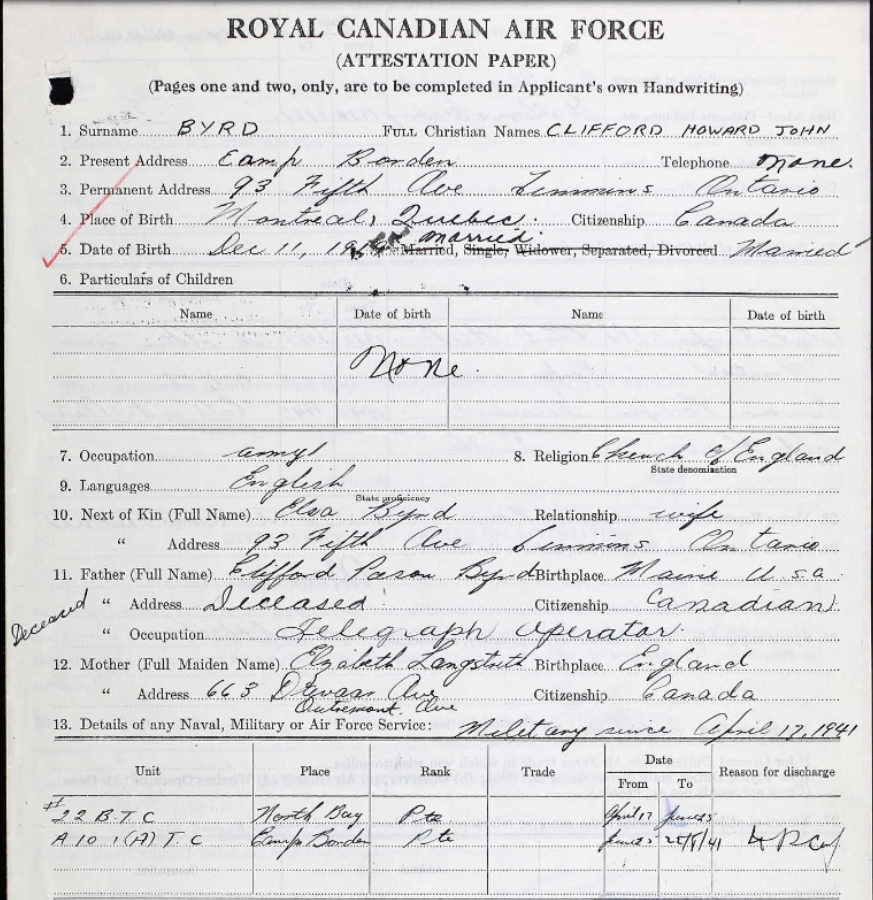 ROYAL CANADIAN AIR FORCE
(ATTESTATION PAPER)
(Pages one and two, only, are to be completed in Applicant's own Handwriting)
1. Surname BYRD FULL Christian Names CLIFFORD HOWARD JOHN
2. Present Address Camp Borden Telephone None.
3. Permanent Address 93 Fifth Ave Timmins Ontario
4. Place of Birth Montreal, Quebec. Citizenship Canada
5. Date of Birth Dec 11, 1919 Married, Single, Widower, Separated, Divorced Married
married
6. Particulars of Children
Name Date of birth Name Date of birth
None.
7. Occupation army 8. Religion Church of England
State denomination
9. Languages English
State proficiency
10. Next of Kin (Full Name) Elva Byrd Relationship wife
" Address 93 Fifth Ave Timmins Ontario
11. Father (Full Name) Clifford Byrd Birthplace Maine U.S.A.
Deceased " Address Deceased Citizenship Canadian
" Occupation Telegraph Operator.
12. Mother (Full Maiden Name) Elizabeth Birthplace England
" Address 663 Ave Citizenship Canada
Outremont Ave
13. Details of any Naval, Military or Air Force Service: Military since April 17, 1941
Unit Place Rank Trade Date Reason for discharge
From To
# 22 B.T.C North Bay Pte April 17 June 25
A 10 1(A) T.C Camp Borden Pte June 25 25/8/41